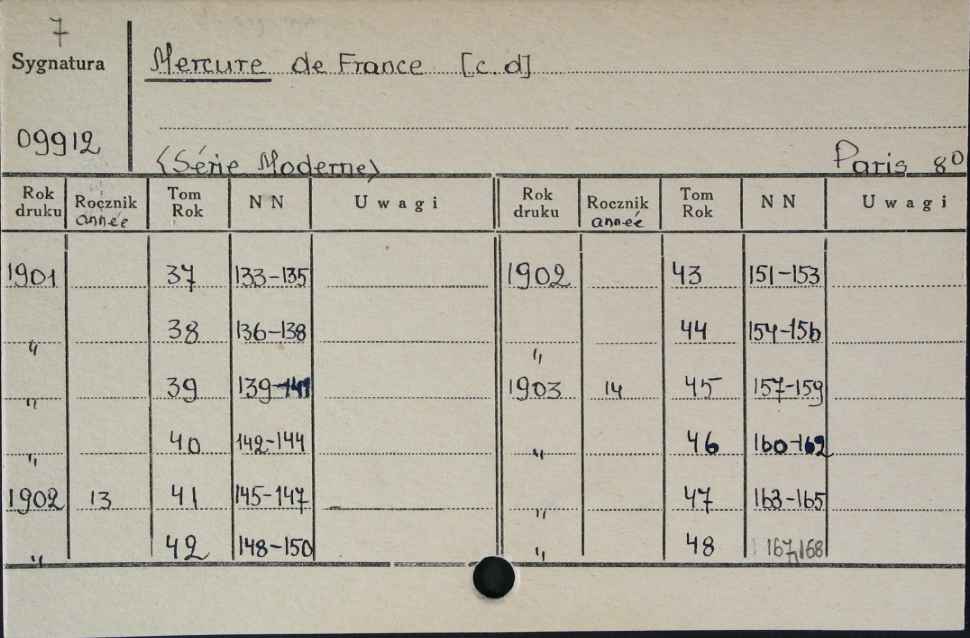 7
Sygnatura
Mercure de France [c.d]
09912
(Série Moderne)
Paris 8⁰
Rok druku Rocznik année Tom Rok NN Uwagi Rok druku Rocznik année Tom Rok NN Uwagi
1901 37 133-135 1902 43 151-153
" 38 136-138 " 44 154-156
" 39 139-141 1903 14 45 157-159
" 40 142-144 " 46 160-162
1902 13 41 145-147 " 47 163-165
" 42 148-150 " 48 167,168